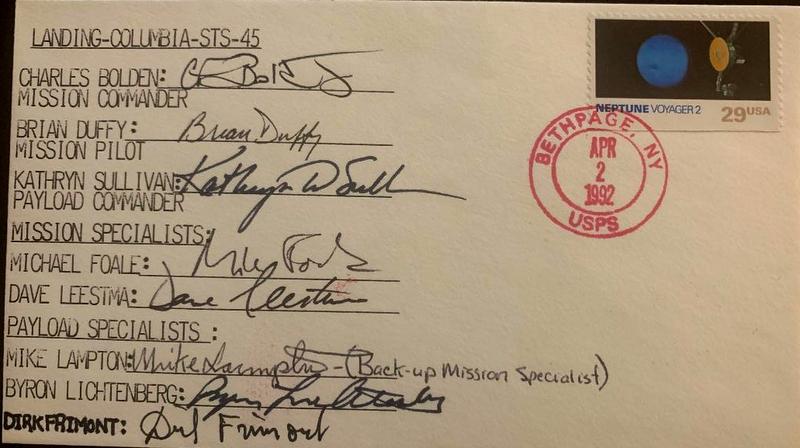 LANDING-COLUMBIA-STS-45
CHARLES BOLDEN: CFBolden Jr
MISSION COMMANDER
BRIAN DUFFY: Brian Duffy
MISSION PILOT
KATHRYN SULLIVAN: Kathryn D Sullivan
PAYLOAD COMMANDER
MISSION SPECIALISTS:
MICHAEL FOALE: Mike Foale
DAVE LEESTMA: Dave Leestma
PAYLOAD SPECIALISTS :
MIKE LAMPTON: Mike Lampton - (Back-up Mission Specialist)
BYRON LICHTENBERG: Byron Lichtenberg
DIRKFRIMONT: Dirk Frimout
NEPTUNE VOYAGER 2
29USA
BETHPAGE, NY
APR
2
1992
USPS